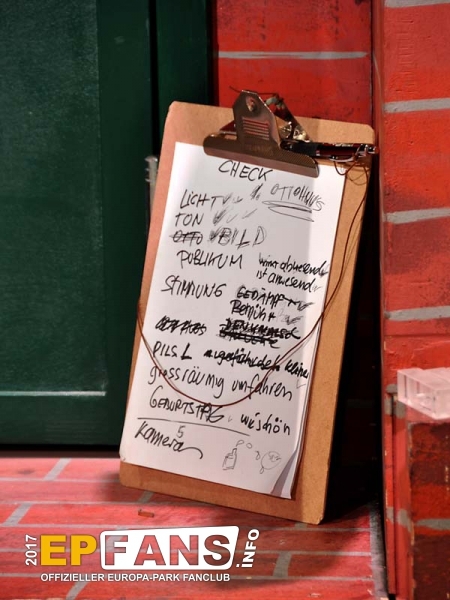 CHECK
LICHT OTTOHAUS
TON
OTTO BILD
PUBLIKUM wirr abwesend
ist anwesend
STIMMUNG GEDÄMPFT
BEMÜHT
PILS L ungefährdeh kleiner
grossräumg umfahren
GEBURTSTAG wie schön
5
Kamera
2017 EPFANS.INFO
OFFIZIELLER EUROPA-PARK FANCLUB